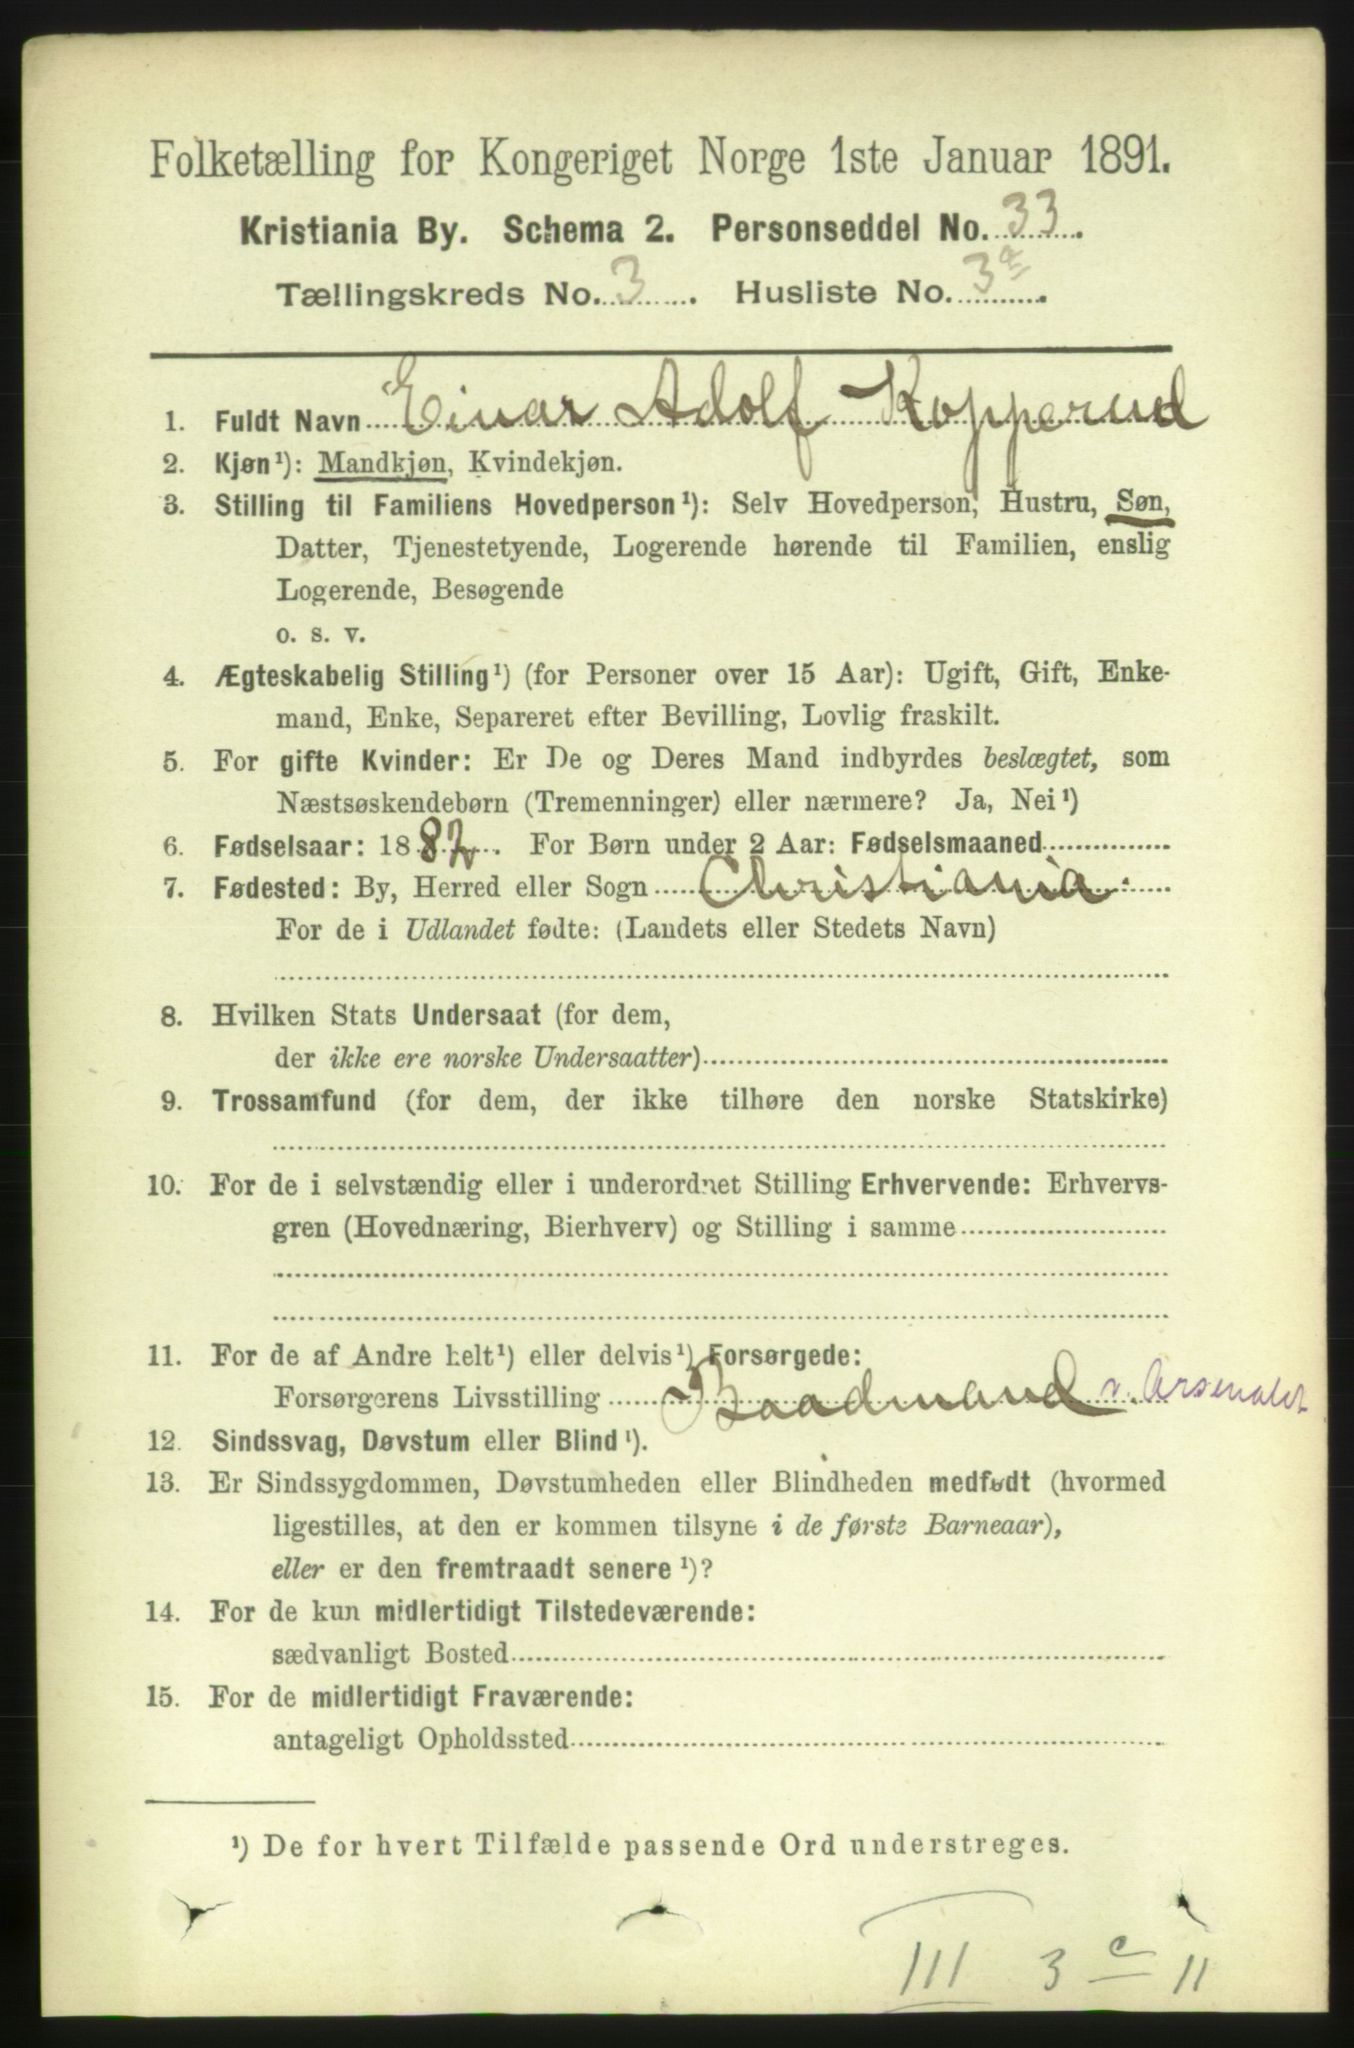 Folketælling for Kongeriget Norge 1ste Januar 1891.
Kristiania By. Schema 2. Personseddel No. 33.
Tællingskreds No. 3. Husliste No. 3a.
1. Fuldt Navn Einar Adolf Kopperud
2. Kjøn¹): Mandkjøn, Kvindekjøn.
3. Stilling til Familiens Hovedperson¹): Selv Hovedperson, Hustru, Søn,
Datter, Tjenestetyende, Logerende hørende til Familien, enslig
Logerende, Besøgende
o. s. v.
4. Ægteskabelig Stilling¹) (for Personer over 15 Aar): Ugift, Gift, Enke-
mand, Enke, Separeret efter Bevilling, Lovlig fraskilt.
5. For gifte Kvinder: Er De og Deres Mand indbyrdes beslægtet, som
Næstsøskendebørn (Tremenninger) eller nærmere? Ja, Nei¹)
6. Fødselsaar: 1882. For Børn under 2 Aar: Fødselsmaaned
7. Fødested: By, Herred eller Sogn Christiania.
For de i Udlandet fødte: (Landets eller Stedets Navn)
8. Hvilken Stats Undersaat (for dem,
der ikke ere norske Undersaatter)
9. Trossamfund (for dem, der ikke tilhøre den norske Statskirke)
10. For de i selvstændig eller i underordnet Stilling Erhvervende: Erhvervs-
gren (Hovednæring, Bierhverv) og Stilling i samme
11. For de af Andre helt¹) eller delvis¹) Forsørgede:
Forsørgerens Livsstilling Baadmand v. Arsenalet
12. Sindssvag, Døvstum eller Blind¹).
13. Er Sindssygdommen, Døvstumheden eller Blindheden medfødt (hvormed
ligestilles, at den er kommen tilsyne i de første Barneaar),
eller er den fremtraadt senere¹)?
14. For de kun midlertidigt Tilstedeværende:
sædvanligt Bosted
15. For de midlertidigt Fraværende:
antageligt Opholdssted
¹) De for hvert Tilfælde passende Ord understreges.
III 3 c 11